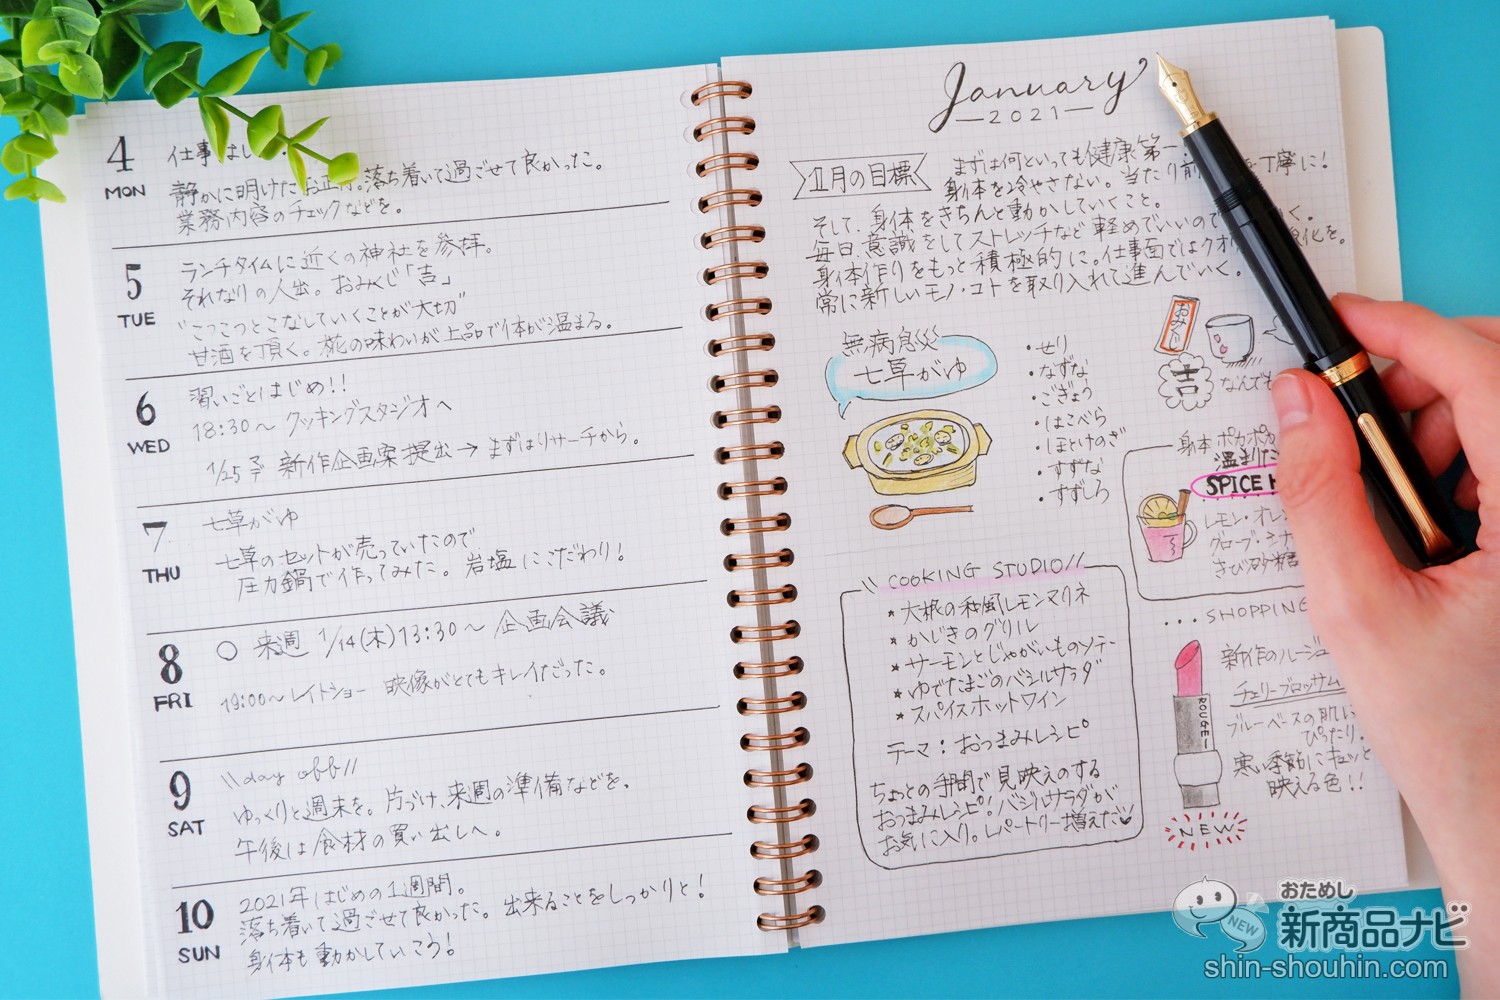 4
MON
仕事はじめ.
静かに明けたお正月。落ち着いて過ごせて良かった。
業務内容のチェックなどを。
5
TUE
ランチタイムに近くの神社を参拝。
それなりの人出。おみくじ「吉」
"こつこつとこなしていくことが大切"
甘酒を頂く。糀の味わいが上品で体が温まる。
6
WED
習いごとはじめ!!
18:30〜 クッキングスタジオへ
1/25 〆 新作企画案提出→まずはリサーチから。
7
THU
七草がゆ
七草のセットが売っていたので
圧力鍋で作ってみた。岩塩にこだわり!
8
FRI
○ 来週 1/14(木)13:30〜 企画会議
19:00〜レイトショー 映像がとてもキレイだった。
9
SAT
\\day off//
ゆっくりと週末を。片づけ、来週の準備などを。
午後は食材の買い出しへ。
10
SUN
2021年はじめの1週間。
落ち着いて過ごせて良かった。出来ることをしっかりと!
身体も動かしていこう!
January
—2021—
1月の目標
まずは何といっても健康第一
身体を冷やさない。当たり前 を丁寧に!
そして、身体をきちんと動かしていくこと。
毎日、意識をしてストレッチなど軽めでいいので く。
身体作りをもっと積極的に。仕事面ではクオリ 化を。
常に新しいモノ・コトを取り入れて進んでいく。
無病息災
七草がゆ
・せり
・なずな
・ごぎょう
・はこべら
・ほとけのざ
・すずな
・すずしろ
おみくじ
吉
なんでも
身体ポカポカ
温まりた
SPICE H
レモン・オレン
グローブ・シナ
きび砂糖
\\ COOKING STUDIO //
★大根の和風レモンマリネ
★かじきのグリル
★サーモンとじゃがいものソテー
★ゆでたまごのバジルサラダ
★スパイスホットワイン
テーマ:おつまみレシピ
ちょっとの手間で見映えのする
おつまみレシピ!バジルサラダが
お気に入り。レパートリー増えた♥
...SHOPPING
新作のルージュ
チェリーブロッサム
ブルーベースの肌に
ぴったり.
寒い季節にキュッと
映える色!!
ROUGE
NEW
NEW
おためし
新商品ナビ
shin-shouhin.com